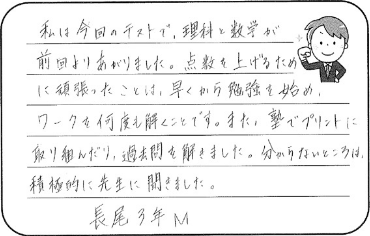 私は今回のテストで、理科と数学が
前回よりあがりました。点数を上げるため
に頑張ったことは、早くから勉強を始め、
ワークを何度も解くことです。また、塾でプリントに
取り組んだり、過去問を解きました。分からないところは、
積極的に先生に聞きました。
長尾3年M